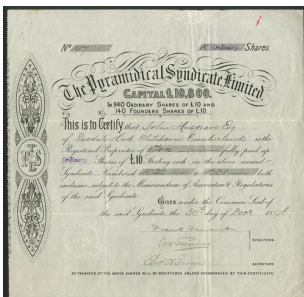 No 107 10 Ordinary Shares.
The Pyramidical Syndicate Limited
CAPITAL £10,800.
IN 940 ORDINARY SHARES OF £10 AND
140 FOUNDERS SHARES OF £10.
This is to Certify that John Musgrave Esq
Whitehaven Cumberland is the
Registered Proprietor of Ten fully paid up
Ordinary Shares of £10 Sterling each in the above named
Syndicate, Numbered to both
inclusive subject to the Memorandum of Association & Regulations
of the said Syndicate
GIVEN under the Common Seal of
the said Syndicate the day of
DIRECTORS.
SECRETARY
NO TRANSFER OF THE ABOVE SHARES WILL BE REGISTERED UNLESS ACCOMPANIED BY THIS CERTIFICATE.